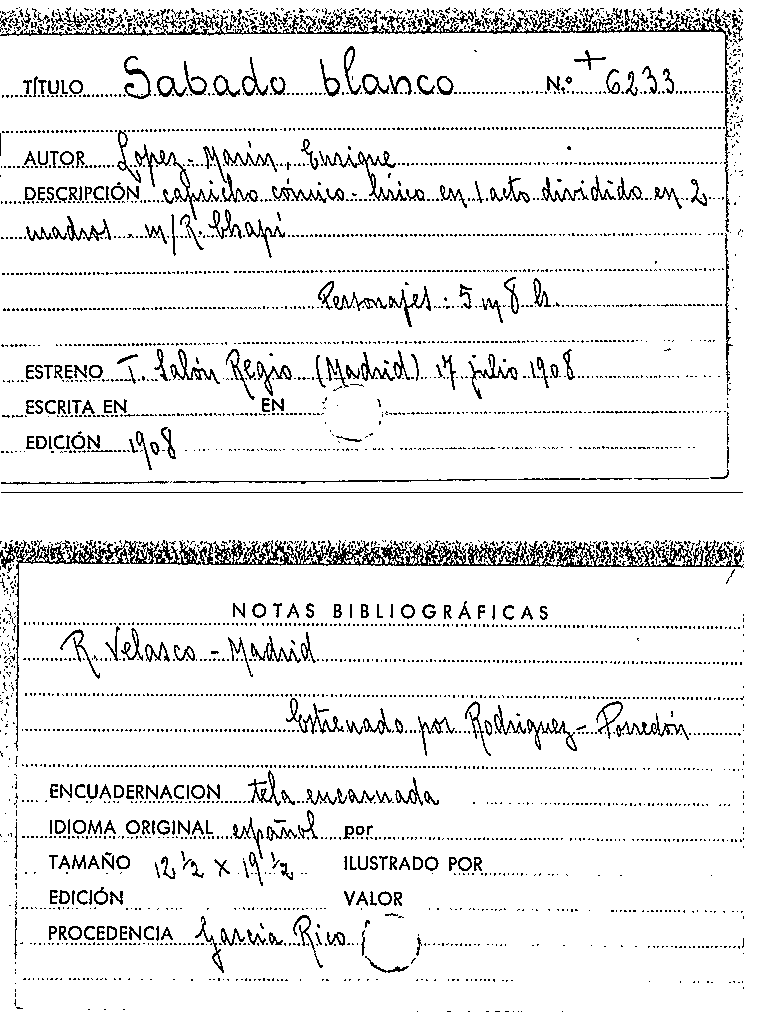 TÍTULO Sabado blanco N.º + 6233
AUTOR Lopez-Marín, Enrique
DESCRIPCIÓN capricho cómico-lírico en 1 acto dividido en 2
cuadros. m/R. Chapí
Personajes: 5 m 8 h.
ESTRENO T. Salón Regio (Madrid) 17 julio 1908
ESCRITA EN EN
EDICIÓN 1908
NOTAS BIBLIOGRÁFICAS
R. Velasco - Madrid
Estrenado por Rodriguez - Porredón
ENCUADERNACION tela encarnada
IDIOMA ORIGINAL español por
TAMAÑO 12 ½ X 19 ½ ILUSTRADO POR
EDICIÓN VALOR
PROCEDENCIA Garcia Rico